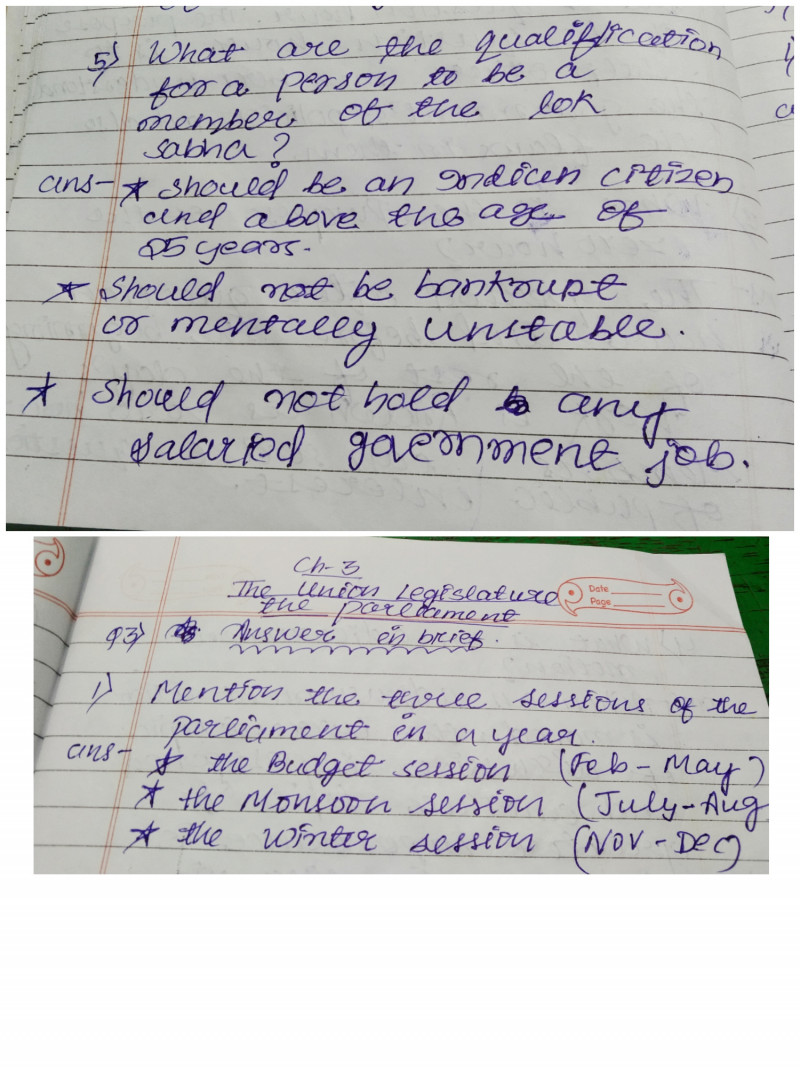 5) What are the qualification
for a person to be a
member of the lok
sabha?
ans- * should be an Indian citizen
and above the age of
25 years.
* Should not be bankrupt
or mentally unstable.
* Should not hold any
salaried government job.
Ch-3
The Union Legislature
the parliament
Date
Page
Q3) Answer in brief.
1) Mention the three sessions of the
parliament in a year.
ans- * the Budget session (Feb - May)
* the Monsoon session (July-Aug
* the Winter session (Nov - Dec)